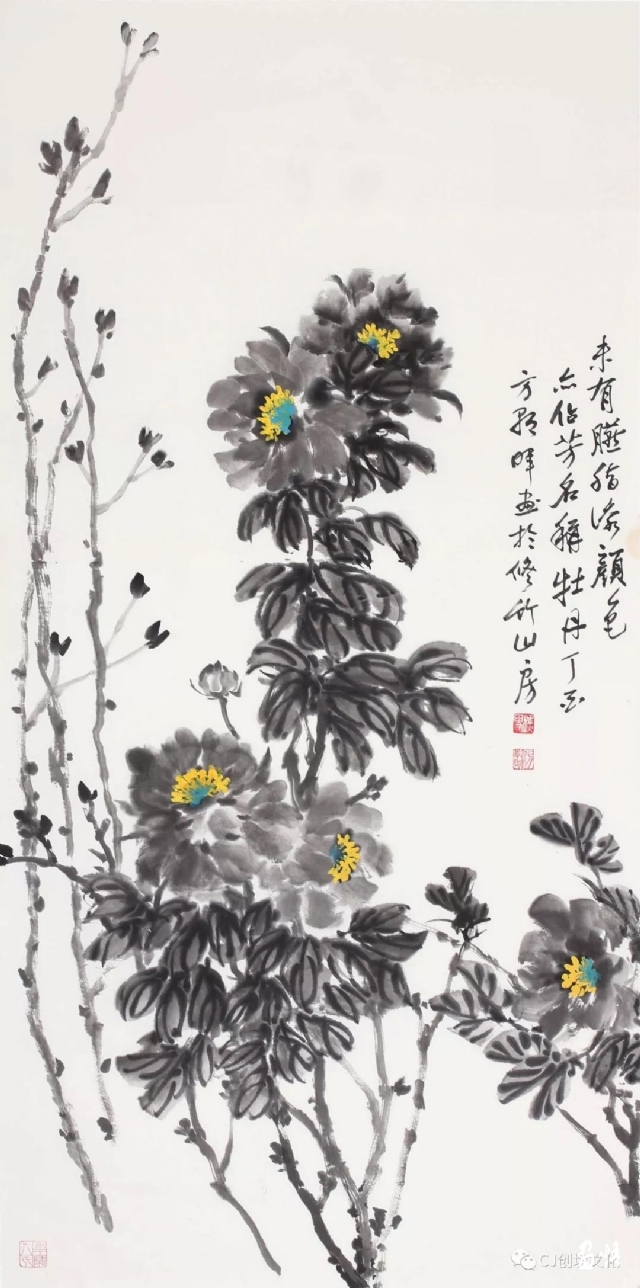 未有臙脂添颜色
亦占芳名称牡丹丁酉
方  晖画于修竹山房
CJ创坛文化